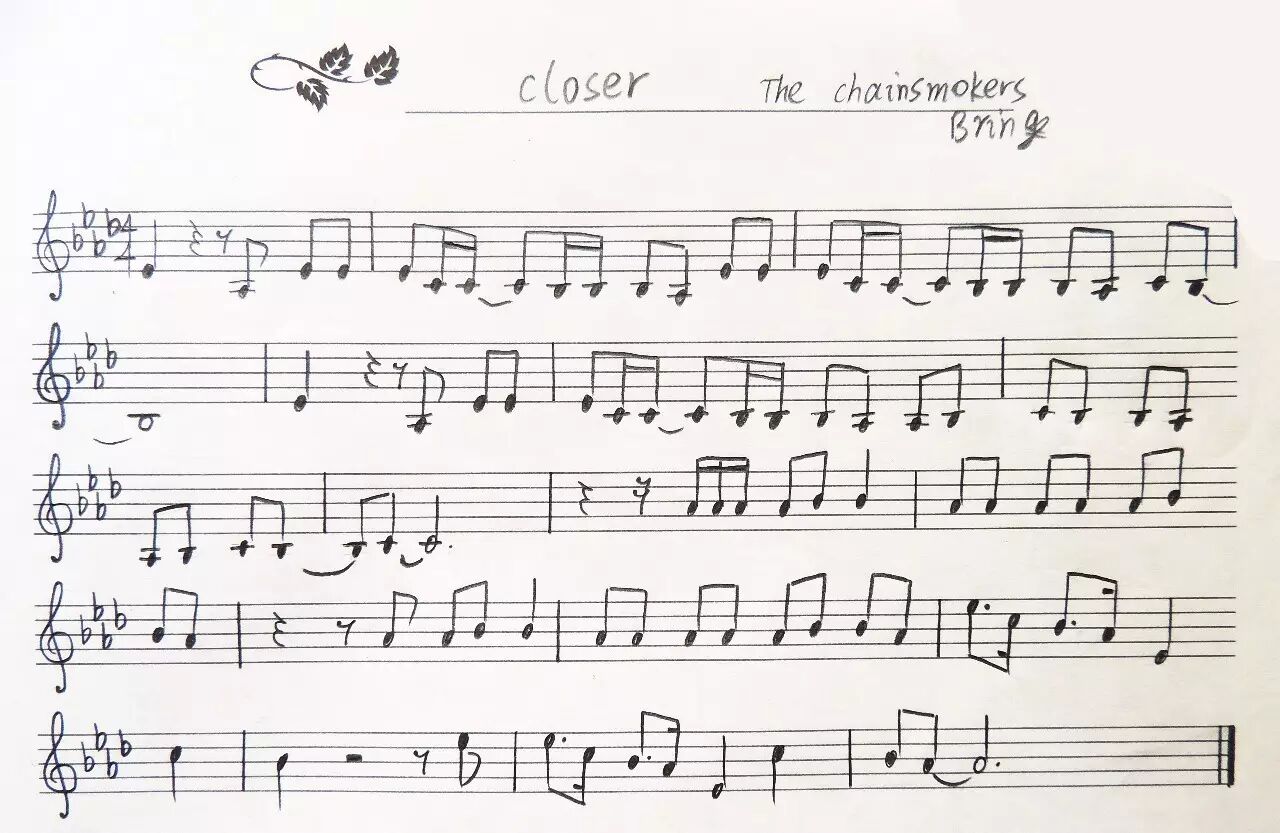 closer The chainsmokers
Bring
4
4